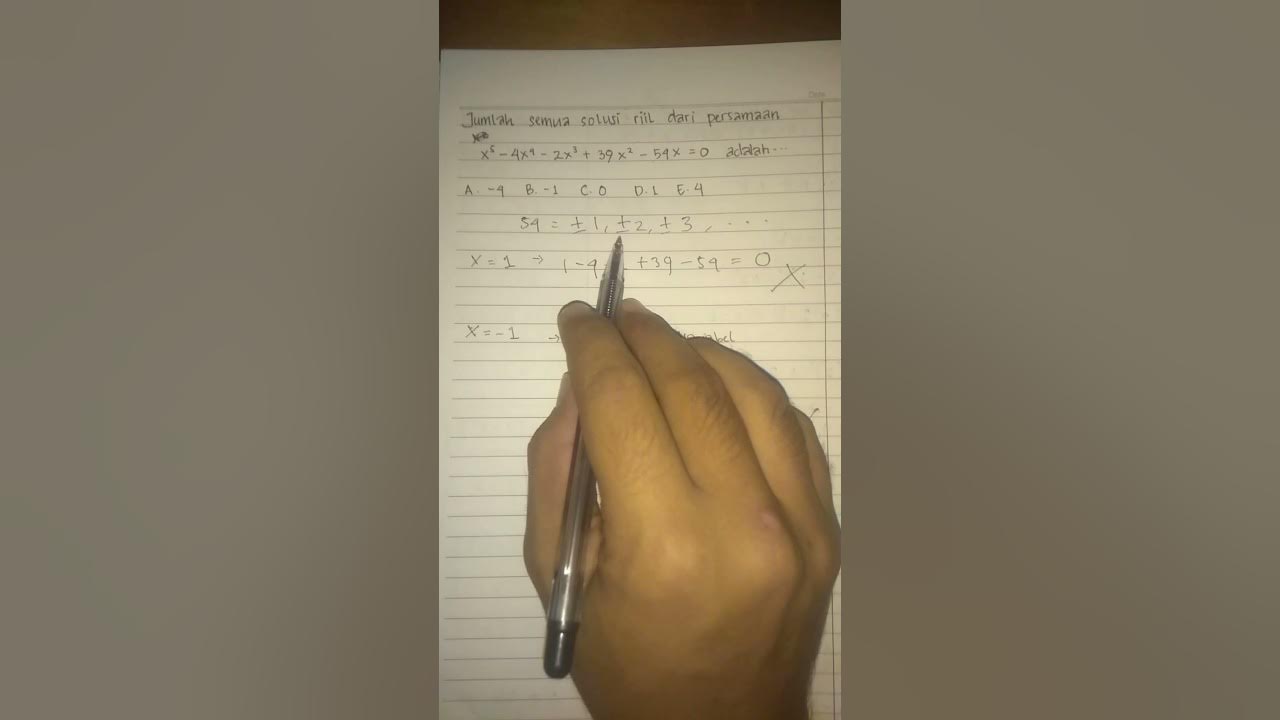 Jumlah semua solusi riil dari persamaan
x⁵ - 4x⁴ - 2x³ + 39x² - 54x = 0 adalah...
A. -4 B. -1 C. 0 D. 1 E. 4
54 = ± 1, ± 2, ± 3, ...
x = 1 → 1 - 4 + 39 - 54 = 0 X
x = -1 →